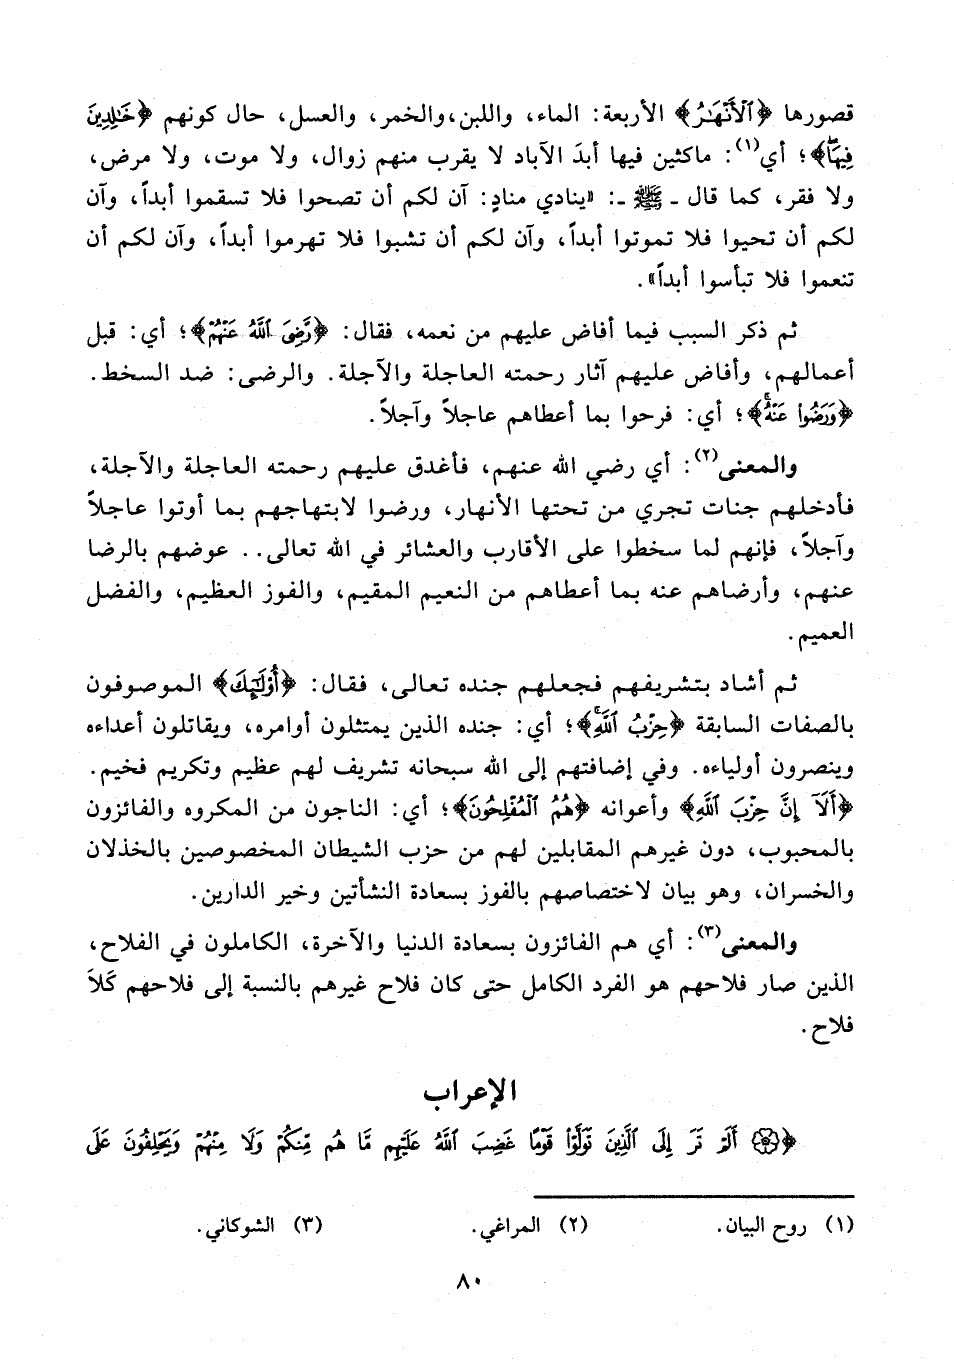 قصورها ﴿ٱلْأَنْهَـٰرُ﴾ الأربعة: الماء، واللبن،والخمر، والعسل، حال كونهم ﴿خَـٰلِدِينَ
فِيهَاۚ﴾؛ أي(١): ماكثين فيها أبدَ الآباد لا يقرب منهم زوال، ولا موت، ولا مرض،
ولا فقر، كما قال ـ ﷺ ـ: «ينادي منادٍ: آن لكم أن تصحوا فلا تسقموا أبداً، وآن
لكم أن تحيوا فلا تموتوا أبداً، وآن لكم أن تشبوا فلا تهرموا أبداً، وآن لكم أن
تنعموا فلا تبأسوا أبداً».
ثم ذكر السبب فيما أفاض عليهم من نعمه، فقال: ﴿رَّضِىَ ٱللَّهُ عَنْهُمْ﴾؛ أي: قبل
أعمالهم، وأفاض عليهم آثار رحمته العاجلة والآجلة. والرضى: ضد السخط.
﴿وَرَضُوا۟ عَنْهُۚ﴾؛ أي: فرحوا بما أعطاهم عاجلاً وآجلاً.
والمعنى(٢): أي رضي الله عنهم، فأغدق عليهم رحمته العاجلة والآجلة،
فأدخلهم جنات تجري من تحتها الأنهار، ورضوا لابتهاجهم بما أوتوا عاجلاً
وآجلاً، فإنهم لما سخطوا على الأقارب والعشائر في الله تعالى.. عوضهم بالرضا
عنهم، وأرضاهم عنه بما أعطاهم من النعيم المقيم، والفوز العظيم، والفضل
العميم.
ثم أشاد بتشريفهم فجعلهم جنده تعالى، فقال: ﴿أُو۟لَـٰٓئِكَ﴾ الموصوفون
بالصفات السابقة ﴿حِزْبُ ٱللَّهِۚ﴾؛ أي: جنده الذين يمتثلون أوامره، ويقاتلون أعداءه
وينصرون أولياءه. وفي إضافتهم إلى الله سبحانه تشريف لهم عظيم وتكريم فخيم.
﴿أَلَآ إِنَّ حِزْبَ ٱللَّهِ﴾ وأعوانه ﴿هُمُ ٱلْمُفْلِحُونَ﴾؛ أي: الناجون من المكروه والفائزون
بالمحبوب، دون غيرهم المقابلين لهم من حزب الشيطان المخصوصين بالخذلان
والخسران، وهو بيان لاختصاصهم بالفوز بسعادة النشأتين وخير الدارين.
والمعنى(٣): أي هم الفائزون بسعادة الدنيا والآخرة، الكاملون في الفلاح،
الذين صار فلاحهم هو الفرد الكامل حتى كان فلاح غيرهم بالنسبة إلى فلاحهم كَلاَ
فلاح.
الإعراب
﴿۞ أَلَمْ تَرَ إِلَى ٱلَّذِينَ تَوَلَّوْا۟ قَوْمًا غَضِبَ ٱللَّهُ عَلَيْهِم مَّا هُم مِّنكُمْ وَلَا مِنْهُمْ وَيَحْلِفُونَ عَلَى
(١) روح البيان. (٢) المراغي. (٣) الشوكاني.
٨٠